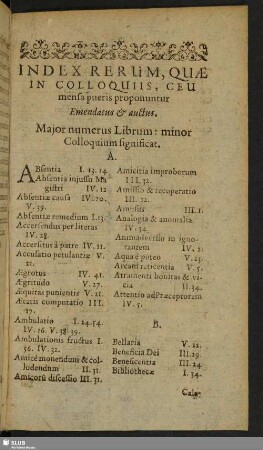 INDEX RERUM, QUÆ
IN COLLOQUIIS, CEU
mensa pueris proponuntur
Emendatus & auctus.
Major numerus Librum: minor
Colloquium significat.
A.
ABsentia I. 13. 14.
Absentia injussu Ma
gistri IV. 12
Absentiæ causa IV. 10.
V. 19.
Absentiæ remedium I. 13.
Accersendus per literas
IV. 28.
Accersitus à patre IV. 11.
Accusatio petulantiæ V.
Ægrotus IV. 41.
Ægritudo V. 27.
Æquitas punientis V. 21.
Ætatis computatio III.
17.
Ambulatio I. 24. 54.
IV. 16. V. 38. 39.
Ambulationis fructus I.
56. IV. 32.
Amicè monendum & col-
ludendum II. 31.
Amicorū discessio III. 31.
Amicitia improborum
III. 32.
Amissio & recuperatio
III. 12.
Amussis III. 1.
Analogia & anomalia
IV. 34.
Animadversio in igno-
rantem IV. 21.
Aqua è puteo V. 25.
Arcani reticentia V. 5.
Atramenti bonitas & vi-
cia II. 34.
Attentio ad Præceptorem
IV. 5.
B.
Bellaria V. 22.
Beneficia Dei III. 29.
Beneficentia III. 24.
Bibliothecæ I. 34.
SLUB